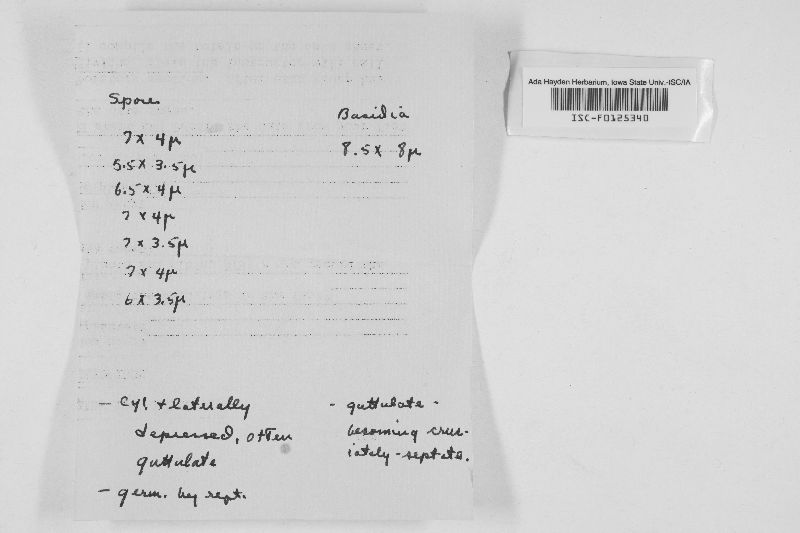 Spores
7 x 4µ
5.5 x 3.5µ
6.5 x 4µ
7 x 4µ
7 x 3.5µ
7 x 4µ
6 x 3.5µ
— Cyl. + laterally
depressed, often
guttulate
— germ. by rept.
Basidia
8.5 x 8µ
- guttulate -
becoming cruc-
iately-septate.
Ada Hayden Herbarium, Iowa State Univ.-ISC/IA
ISC-F0125340